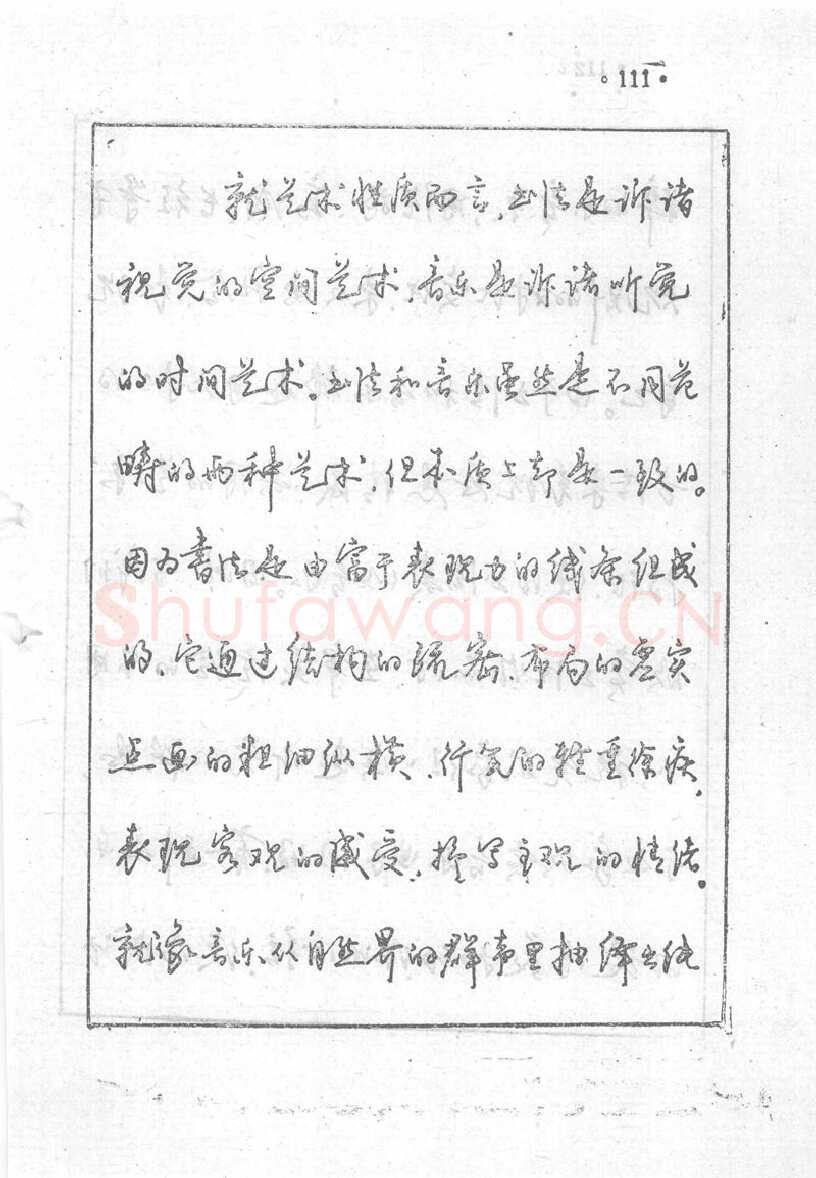 ·111·
就艺术性质而言,书法是诉诸
视觉的空间艺术,音乐是诉诸听觉
的时间艺术。书法和音乐虽然是不同范
畴的两种艺术,但本质上却是一致的。
因为書法是由富于表现力的线条组成
Shufawang.CN
的,它通过结构的疏密、布局的虚实
点画的粗细纵横、行气的轻重徐疾,
表现客观的感受,抒写主观的情绪。
就像音乐从自然界的群声里抽绎出纯